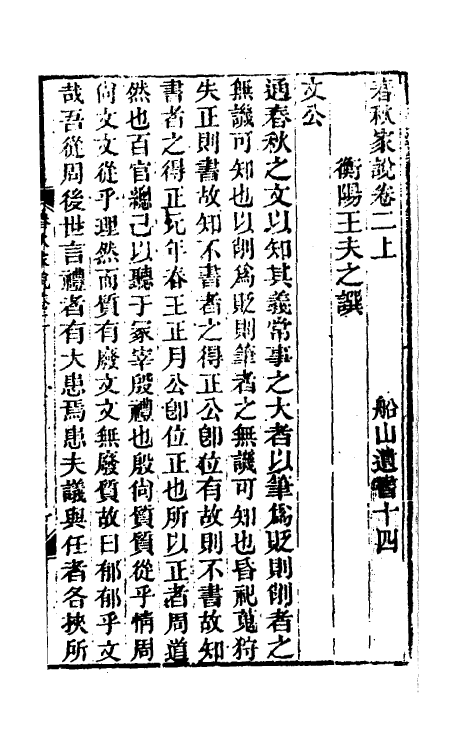 春秋家說卷二上
船山遺書十四
衡陽王夫之譔
文公
通春秋之文以知其義常事之大者以筆爲貶則削者之
無譏可知也以削爲貶則筆者之無譏可知也昏祀蒐狩
失正則書故知不書者之得正公卽位有故則不書故知
書者之得正元年春王正月公卽位正也所以正者周道
然也百官總己以聽于冢宰殷禮也殷尙質質從乎情周
尙文文從乎理然而質有廢文文無廢質故曰郁郁乎文
哉吾從周後世言禮者有大患焉患夫議與任者各挾所